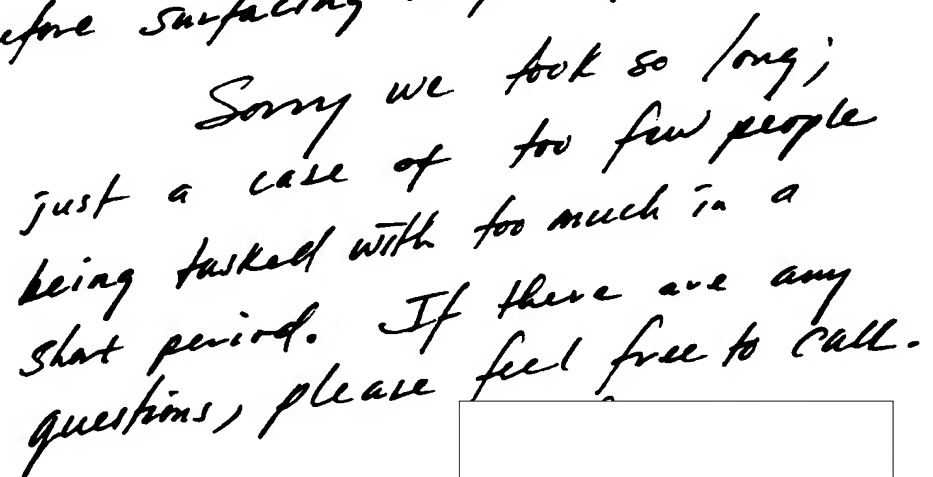 before surfacing
Sorry we took so long;
just a case of too few people
being tasked with too much in a
short period. If there are any
questions, please feel free to call.